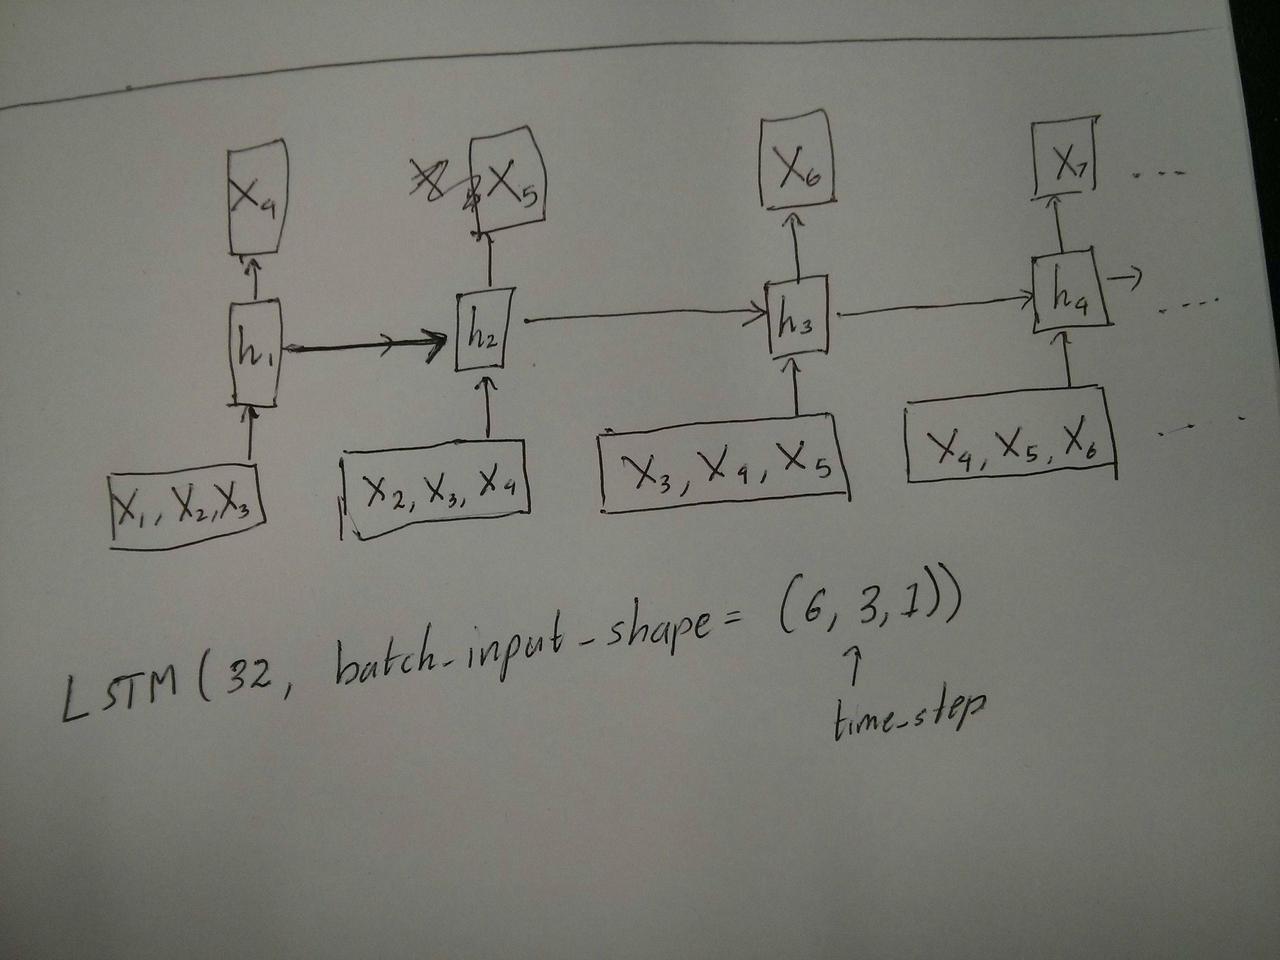 X₄ X₅ X₆ X₇ ....
h₁ h₂ h₃ h₄ ....
X₁, X₂, X₃ X₂, X₃, X₄ X₃, X₄, X₅ X₄, X₅, X₆ ....
LSTM(32, batch_input_shape = (6, 3, 1))
time_step